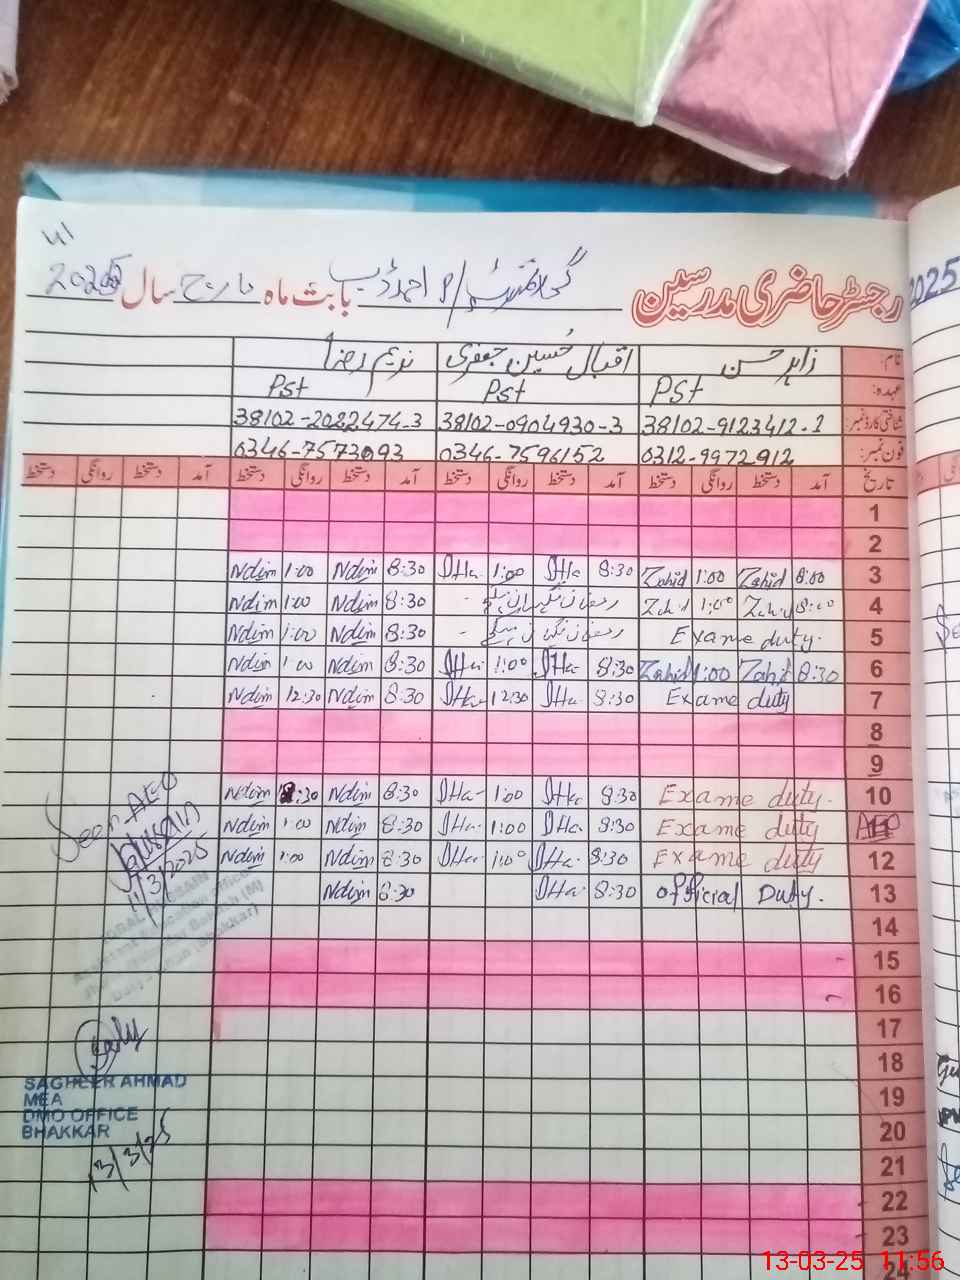 رجسٹر حاضری مدرسین احمد ڈب بابت ماہ مارچ سال 2025
2025
نام: زاہد حسن اقبال حسین جعفری ندیم رضا
عہدہ: Pst Pst Pst
شناختی کارڈ نمبر: 38102-9123412-1 38102-0904930-3 38102-2022474-3
فون نمبر: 0312-9972912 0346-7596152 0346-7573093
تاریخ آمد دستخط روانگی دستخط آمد دستخط روانگی دستخط آمد دستخط روانگی دستخط آمد دستخط روانگی دستخط
1
2
3 8:00 Zahid 1:00 Zahid 8:30 1:00 8:30 Ndim 1:00 Ndim
4 8:00 Zahid 1:00 Zahid رمضان نگہبان 8:30 Ndim 1:00 Ndim
5 Exame duty. رمضان نگہبان 8:30 Ndim 1:00 Ndim
6 8:30 Zahid 1:00 Zahid 8:30 1:00 8:30 Ndim 1:00 Ndim
7 Exame duty 8:30 12:30 8:30 Ndim 12:30 Ndim
8
9
10 Exame duty. 8:30 1:00 8:30 Ndim :30 Ndim
Exame duty 8:30 1:00 8:30 Ndim 1:00 Ndim
12 Exame duty 8:30 1:00 8:30 Ndim 1:00 Ndim
13 official Duty. 8:30 8:30 Ndim
14
15
16
17
18
19
20
21
22
23
24
Seen AEO
Hussain
11/3/2025
SAGHEER AHMAD
MEA
DMO OFFICE
BHAKKAR
13/3/25
13-03-25 11:56